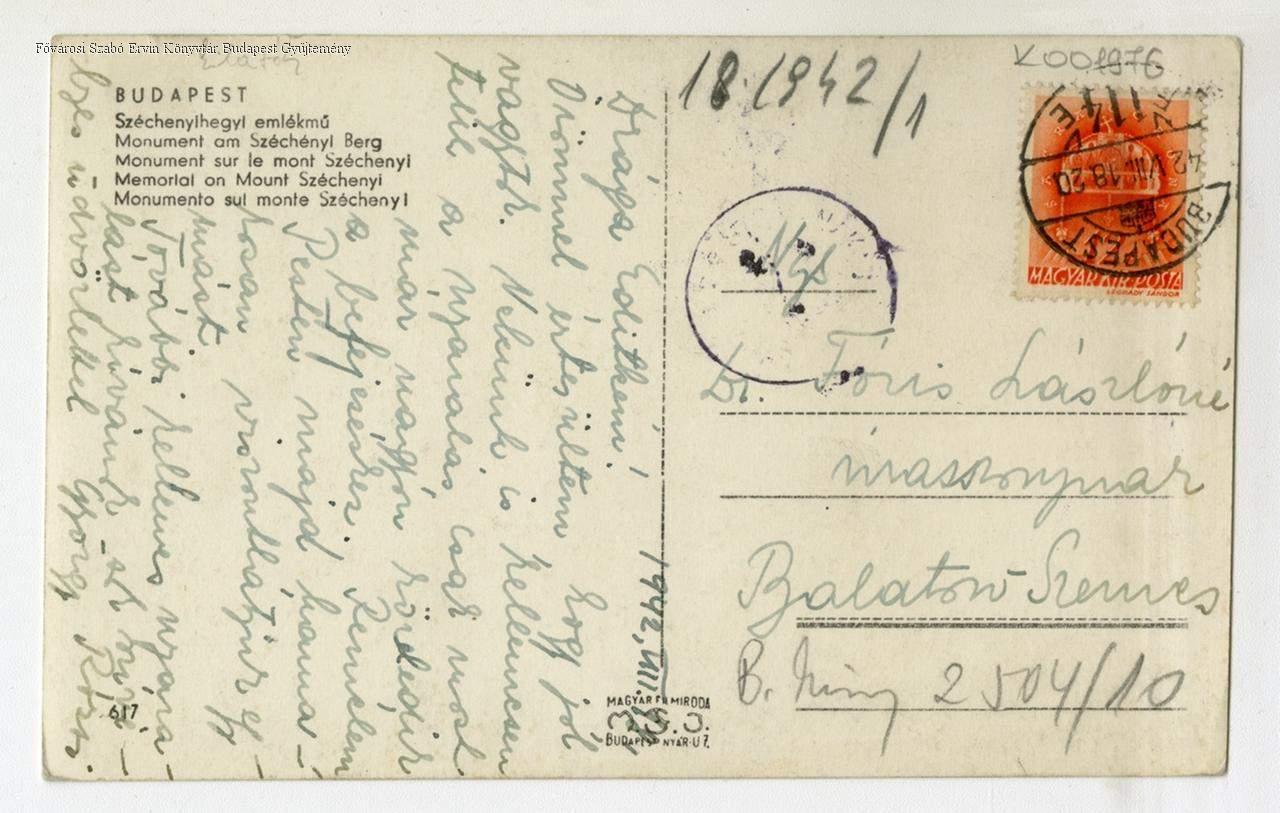 Fővárosi Szabó Ervin Könyvtár Budapest Gyűjtemény
BUDAPEST
Széchenyihegyi emlékmű
Monument am Széchényi Berg
Monument sur le mont Széchenyi
Memorial on Mount Széchenyi
Monumento sul monte Széchenyi
K001976
18.1942/1
BUDAPEST
42 VIII. 18 20
114
MAGYAR KIR. POSTA
LÉGRÁDY SÁNDOR
1942, VIII.
Drága Editkém!
Örömmel értesültem hogy jól
vagytok. Nekünk is kellemesen
telik a nyaralás csak most
már nagyon közeledik
a befejezéshez. Remélem
Pesten majd hama-
rosan viszontlátjuk egy-
mást
További kellemes nyara-
lást kívánok
üdvözlettel György
Ngs
Dr. Fóris Lászlóné
Balaton-Szemes
B. 2504/10
617
MAGYAR FILMIRODA
BUDAPEST NYÁR-U 7.